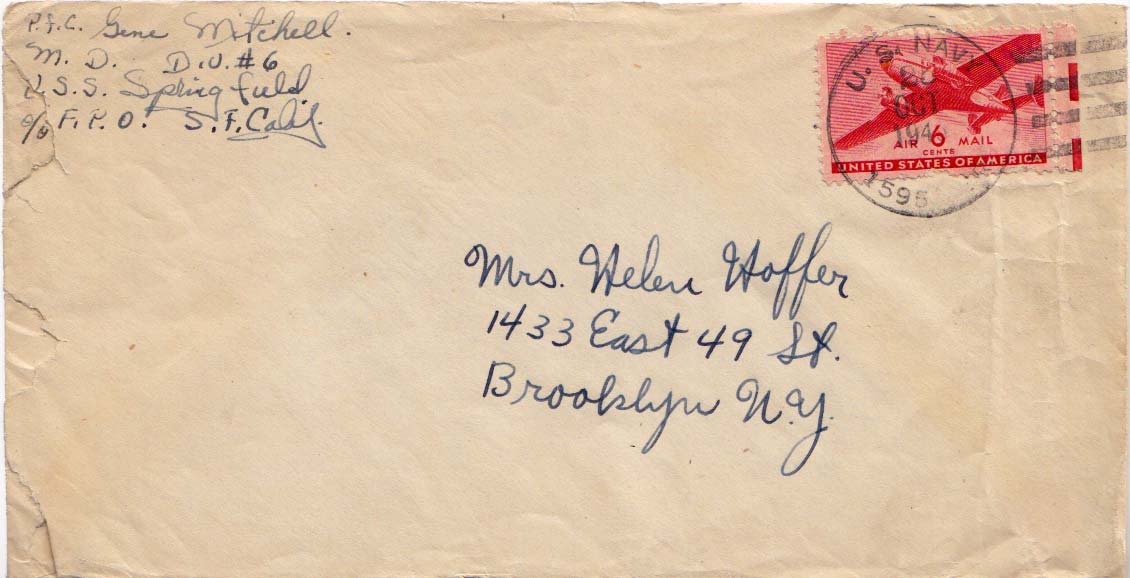 P.F.C. Gene Mitchell.
M. D. DIV. #6
U.S.S. Springfield
c/o F.P.O. S.F. Calif.
U.S. NAVY
OCT
194
1595
AIR 6 MAIL
CENTS
UNITED STATES OF AMERICA
Mrs. Helen Hoffer
1433 East 49 St.
Brooklyn N.Y.